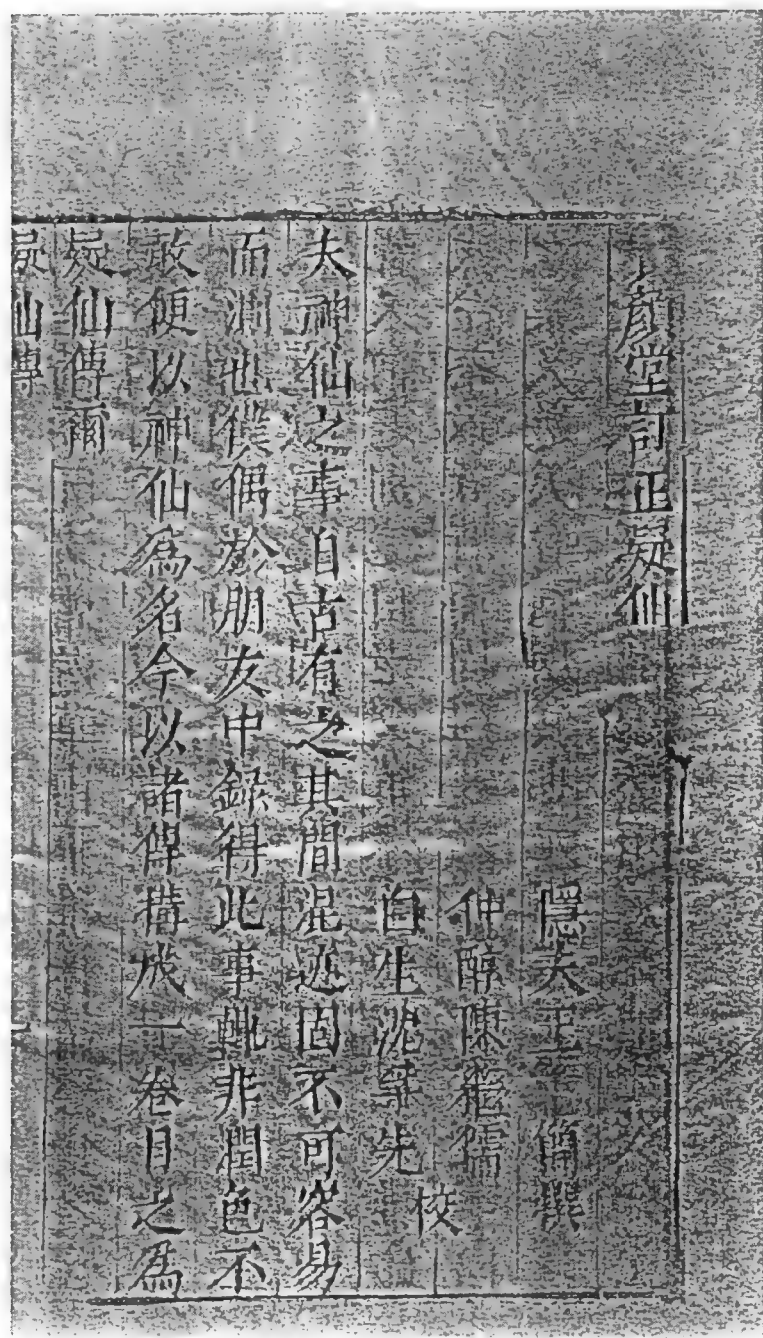 顏堂訂正疑仙
隱夫王簡撰
仲醇陳繼儒
白生沈孚先
校
夫神仙之事自古有之其間混迹固不可容易
而測也僕偶於朋友中錄得此事輒非潤色不
敢便以神仙為名今以諸傳構成一卷目之為
疑仙傳爾
疑仙傳